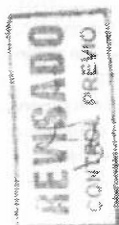 REVISADO
CONTROL PREVIO